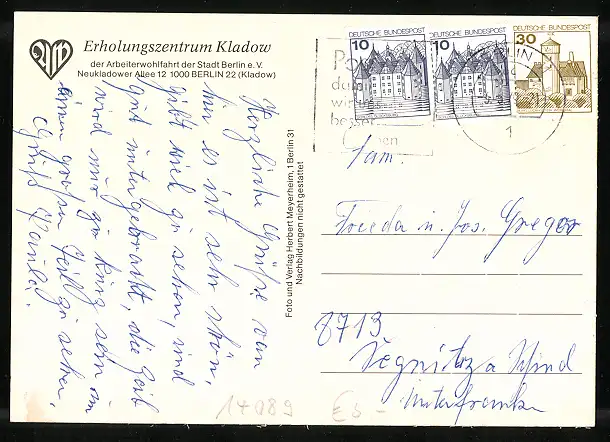 Erholungszentrum Kladow
der Arbeiterwohlfahrt der Stadt Berlin e. V.
Neukladower Allee 12 1000 BERLIN 22 (Kladow)
Herzliche Grüße von
hier es ist sehr schön,
gibt viel zu sehen, sind
gut untergebracht, die Zeit
wird nur zu kurz sein um
einen großen Teil zu sehen.
Gruß
Foto und Verlag Herbert Meyerheim, 1 Berlin 31
Nachbildungen nicht gestattet
10 DEUTSCHE BUNDESPOST
10 DEUTSCHE BUNDESPOST
30 DEUTSCHE BUNDESPOST
1
Fam.
Frieda u. Jos. Greger
8713
Segnitz a
Unterfranken